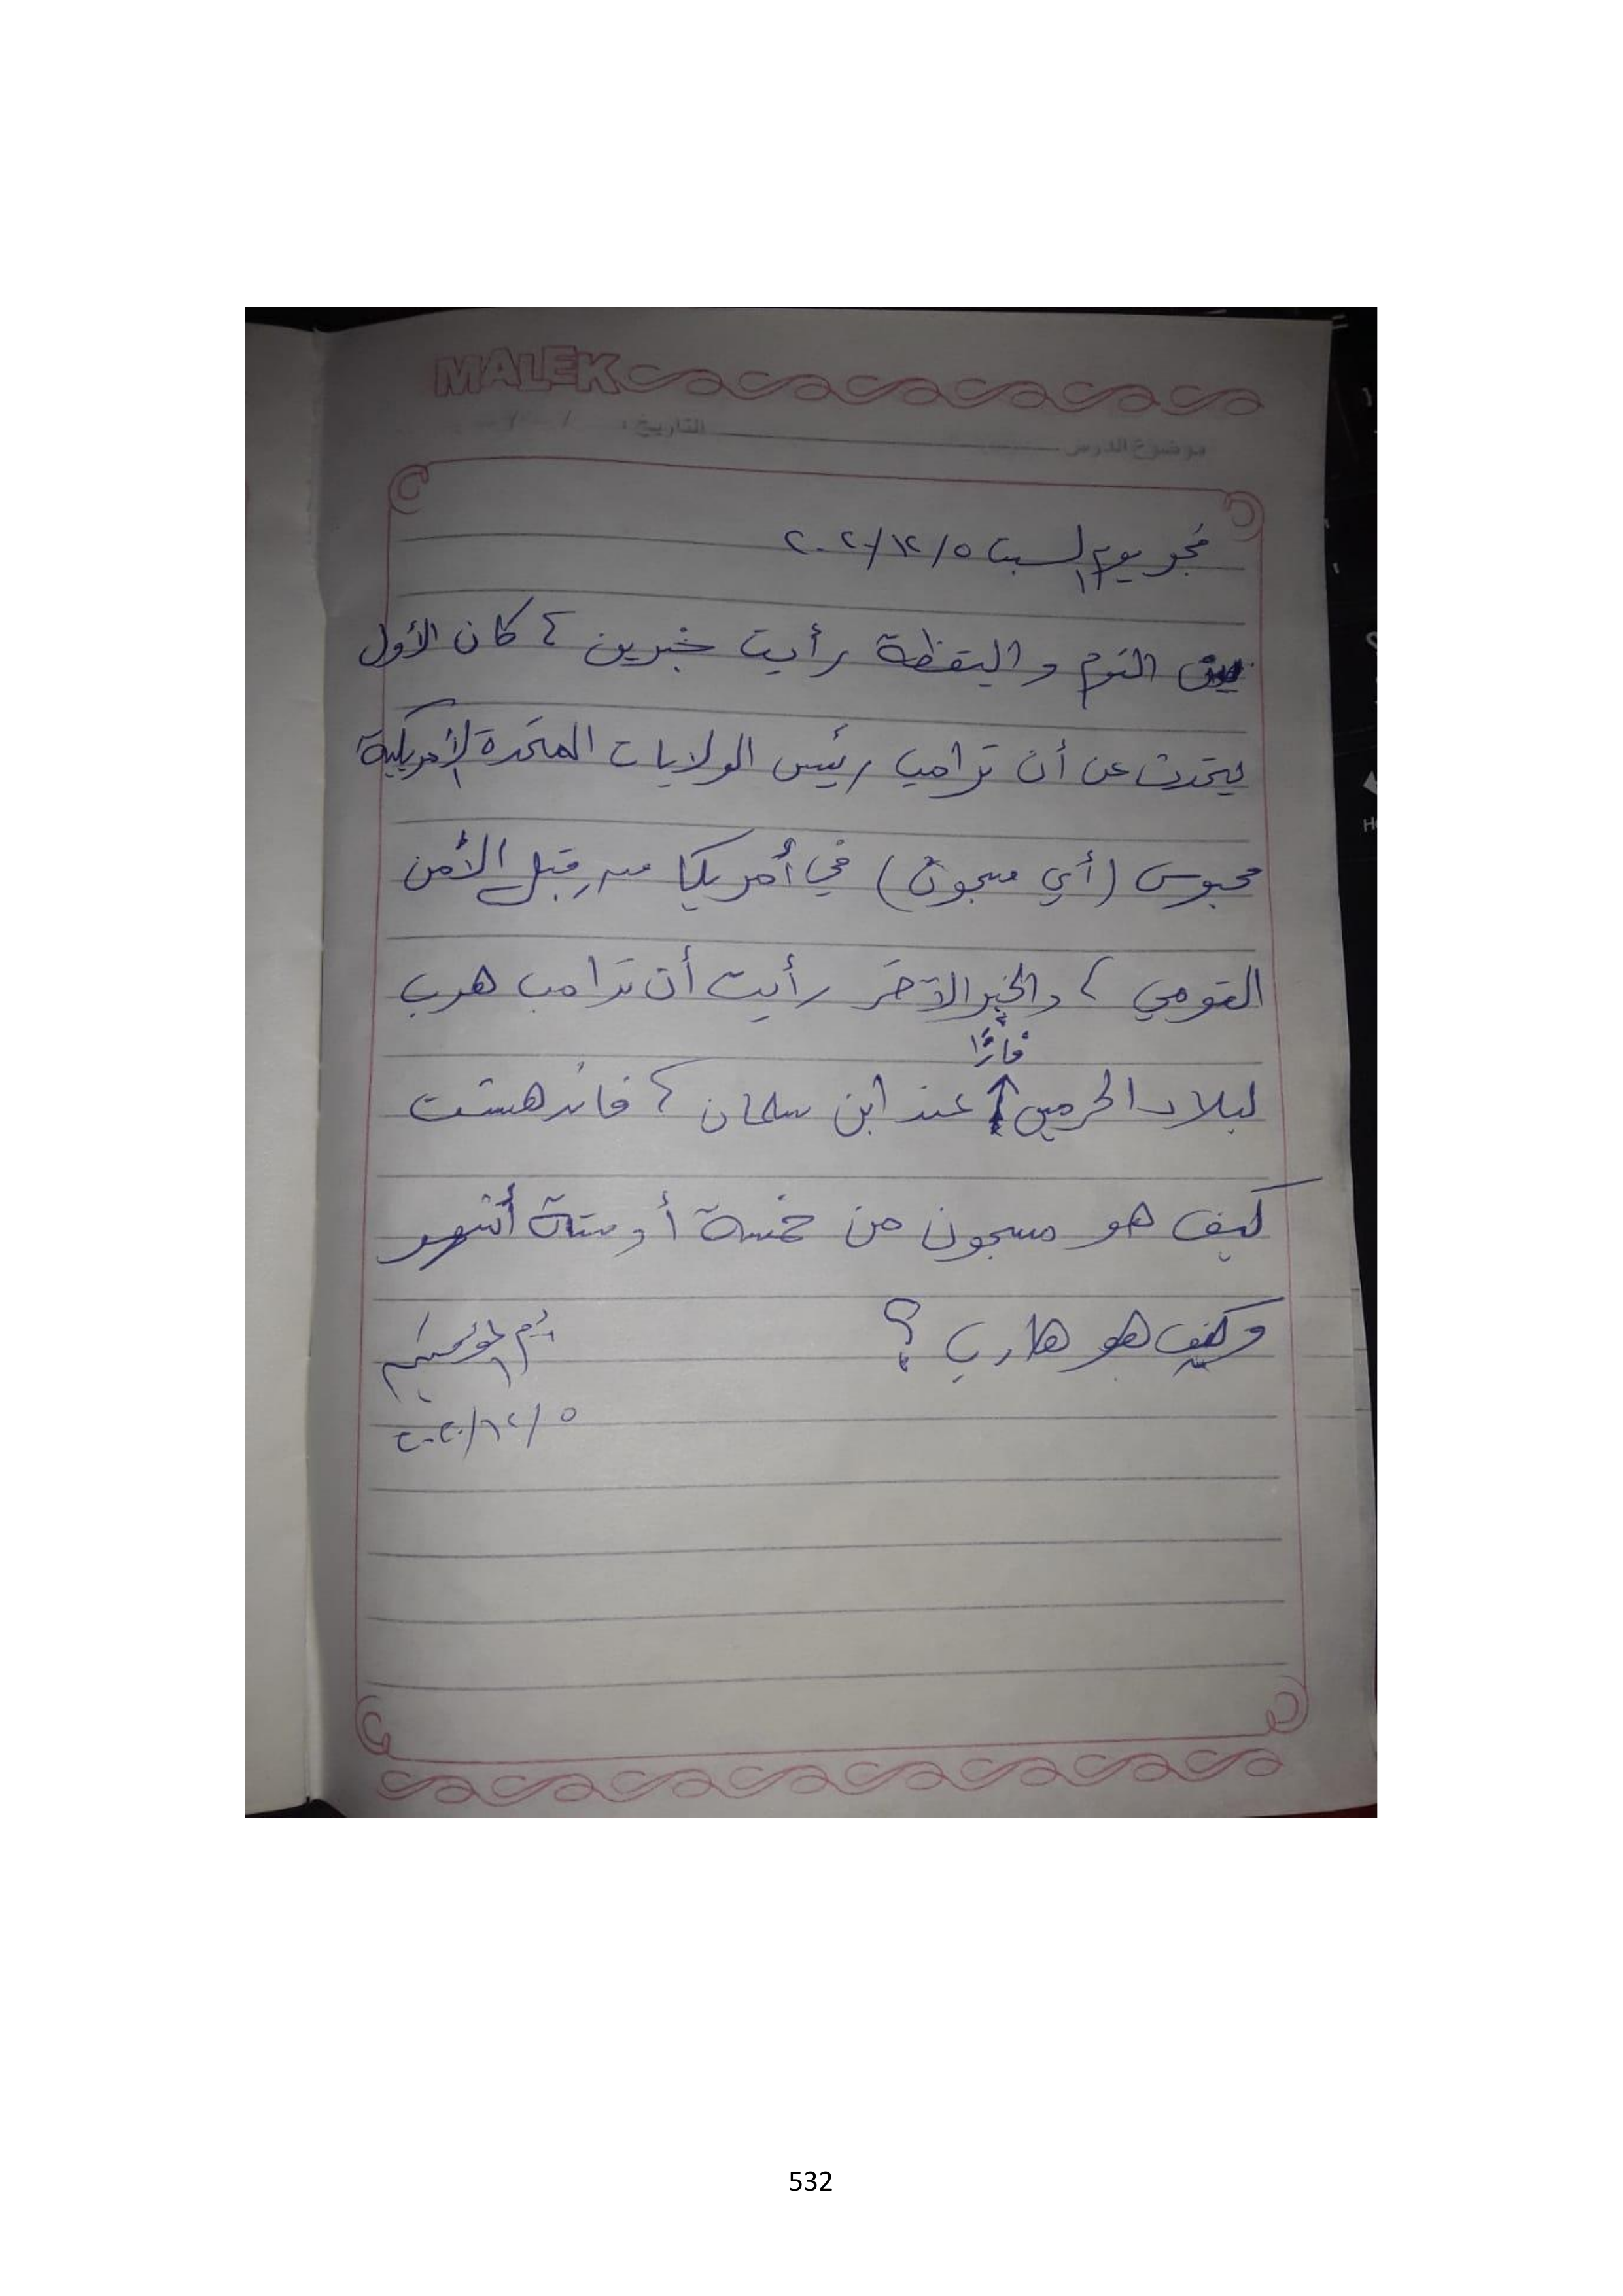 MALEK
موضوع الدرس التاريخ : / /
فجر يوم السبت ٢٠٢٠/١٢/٥
بين النوم واليقظة رأيت خبرين ، كان الأول
يتحدث عن أن ترامب رئيس الولايات المتحدة الأمريكية
محبوس (أي مسجون) في أمريكا من قِبل الأمن
القومي ، والخبر الآخر رأيت أن ترامب هرب
فارًّا
لبلاد الحرمين ↑ عند ابن سلمان ، فاندهشت
كيف هو مسجون من خمسة أو ستة أشهر
وكيف هو هارب ؟
٢٠٢٠/١٢/٥
532